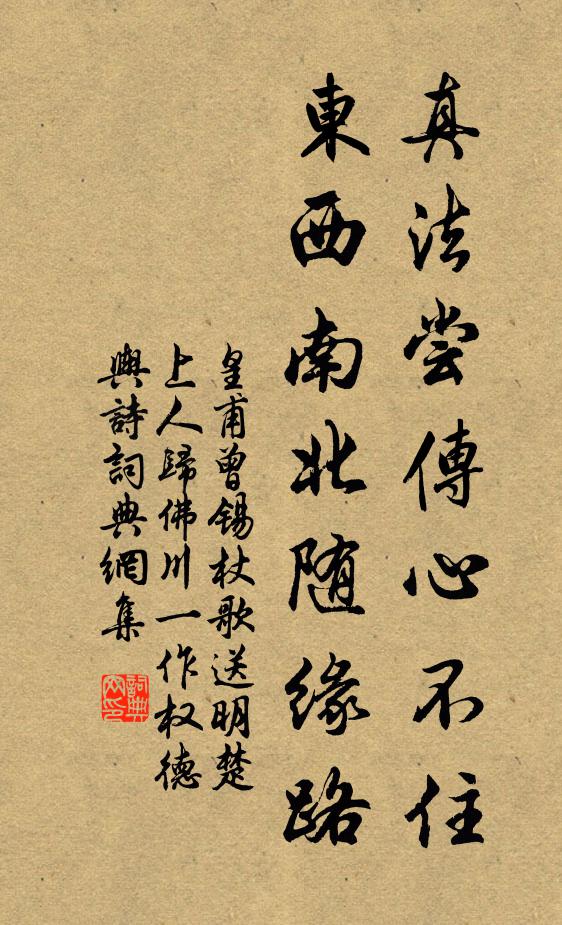 真法嘗傳心不住
東西南北随緣路
皇甫曾锡杖歌送明楚
上人歸佛川一作权德
輿詩詞典網集
詞典